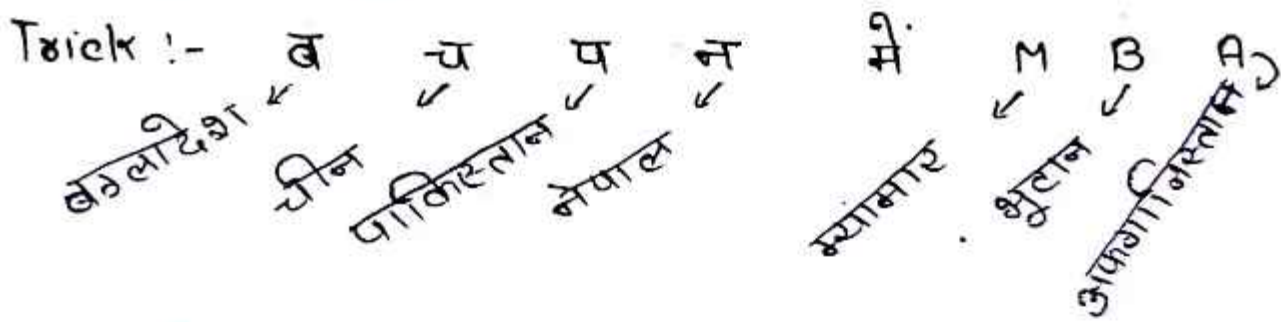 Trick :- ब च प न में M B A
बंग्लादेश चीन पाकिस्तान नेपाल म्यांमार भुटान अफगानिस्तान